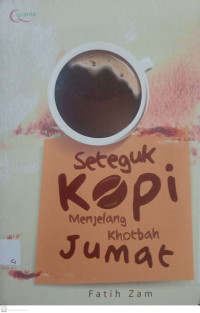 Seteguk
Kopi
Menjelang
Khotbah
Jumat
Fatih Zam